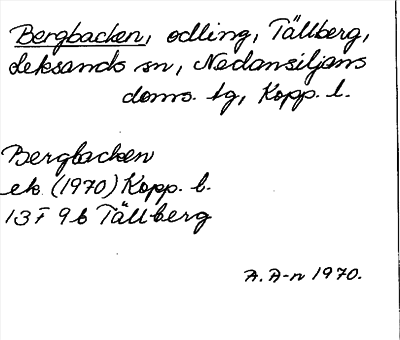 Bergbacken, odling, Tällberg,
Leksands sn, Nedansiljans
doms. tg, Kopp. l.
Bergbacken
ek. (1970) Kopp. l.
13F 9b Tällberg
A. A-n 1970.